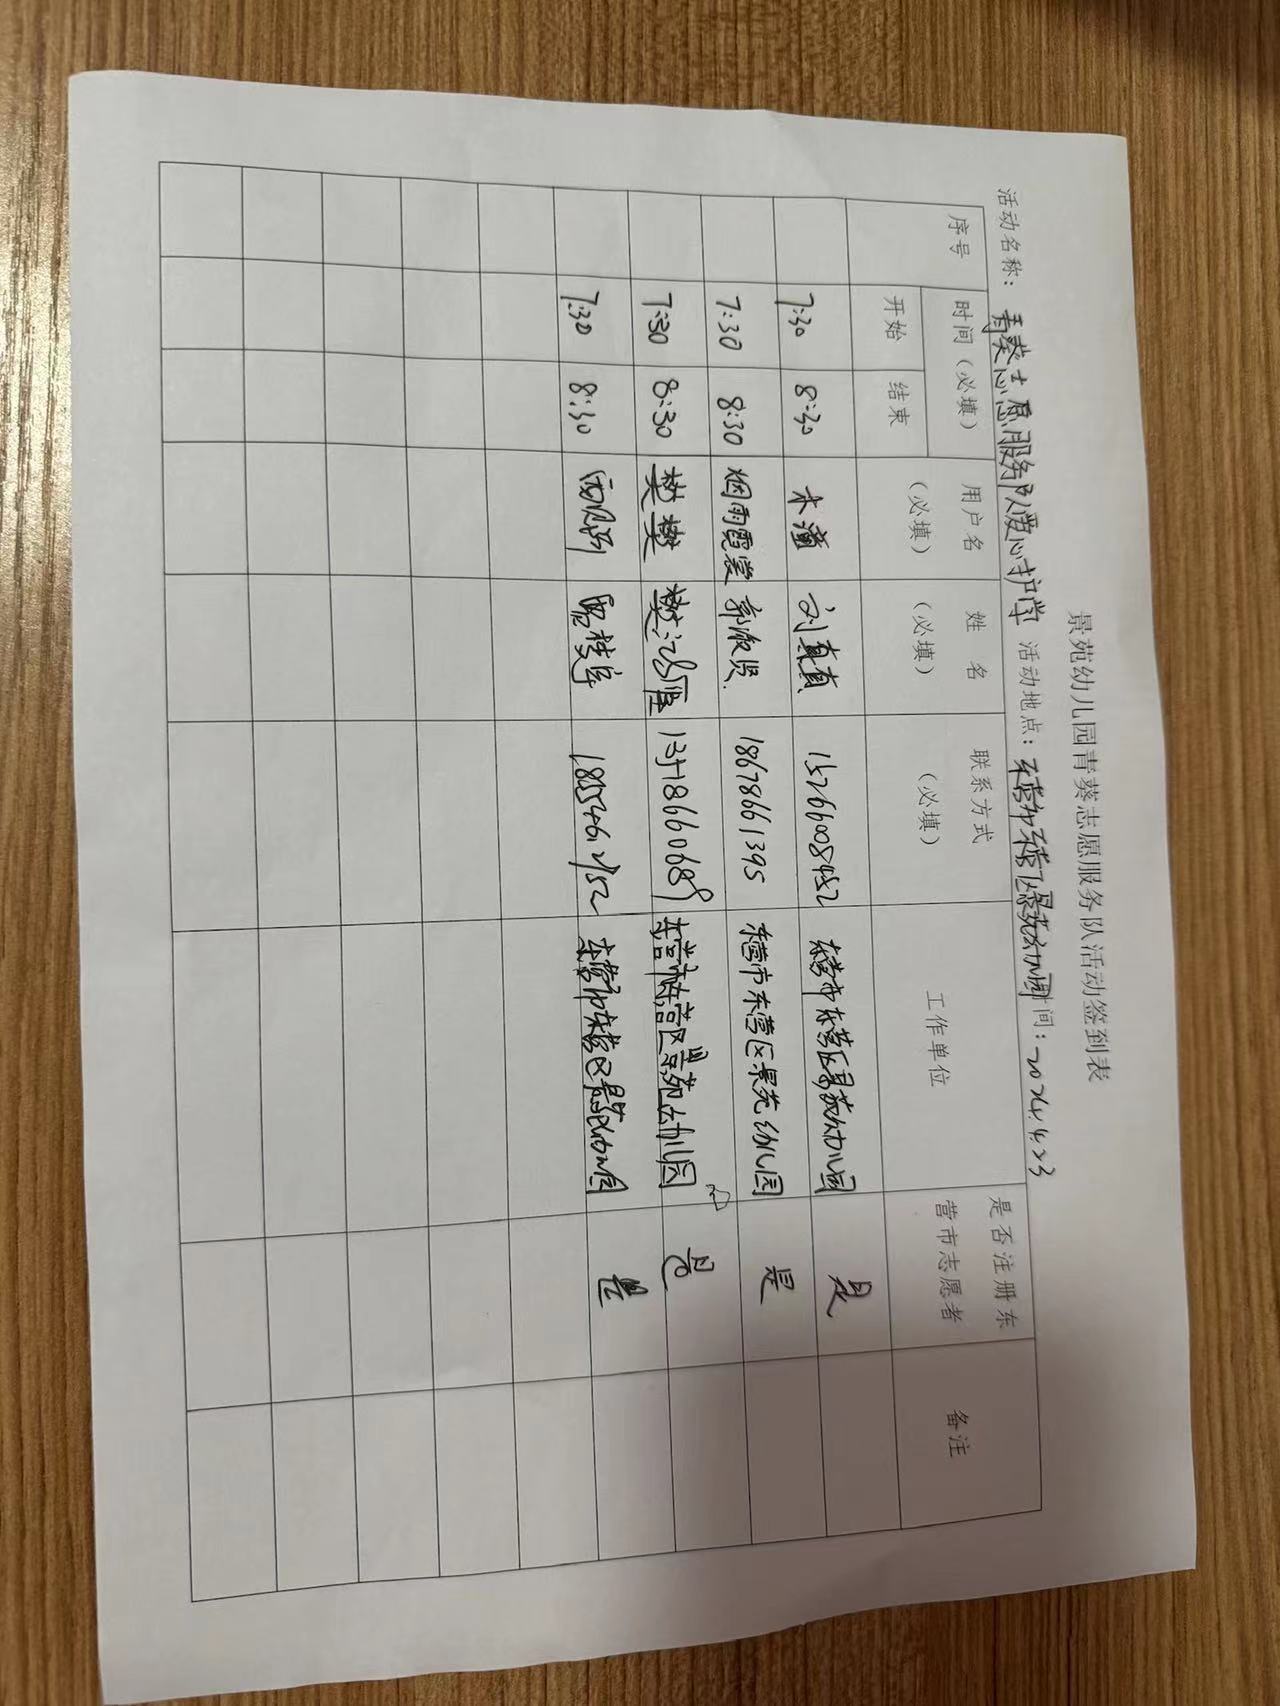 景苑幼儿园青葵志愿服务队活动签到表
活动名称：青葵志愿服务队爱心护学 活动地点：东营市东营区景苑幼儿园 时间：2024.4.23
序号 时间（必填） 用户名（必填） 姓名（必填） 联系方式（必填） 工作单位 是否注册东营市志愿者 备注
开始 结束
7:30 8:30 木潘 刘真真 15266008452 东营市东营区景苑幼儿园 是
7:30 8:30 烟雨霓裳 郭淑贤 18678661395 东营市东营区景苑幼儿园 是
7:30 8:30 樊樊 樊 东营市东营区景苑幼儿园 是
7:30 8:30 18054612152 东营市东营区景苑幼儿园 是